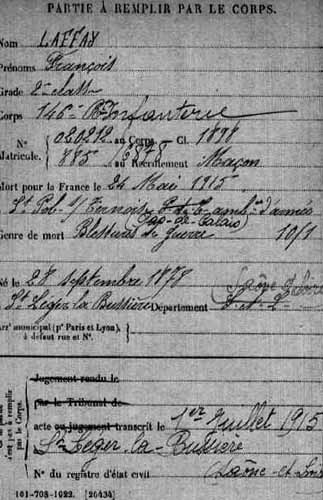 PARTIE À REMPLIR PAR LE CORPS.
Nom LAFFAY
Prénoms François
Grade 2e classe
Corps 146e Rt Infanterie
N° 020212 au Corps. — Cl. 1898
Matricule. 885 au Recrutement Macon
Mort pour la France le 24 Mai 1915
St Pol s/ Ternoise amb. d'armée
(Pas-de-Calais)
Genre de mort Blessures de Guerre 10/1
Né le 28 septembre 1878
St Leger la Bussière Département S. et L. Saône et Loire
Arr' municipal (pr Paris et Lyon),
à défaut rue et N°.
Jugement rendu le
par le Tribunal de
acte ou jugement transcrit le 1er Juillet 1915
St Leger-la-Bussière
N° du registre d'état civil Saône-et-Loire
101-708-1922. [26434]